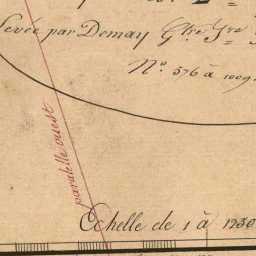 Levée par Demay Gtre
N°. 576 à 1009
parallelle ouest
Echelle de 1 à 1250